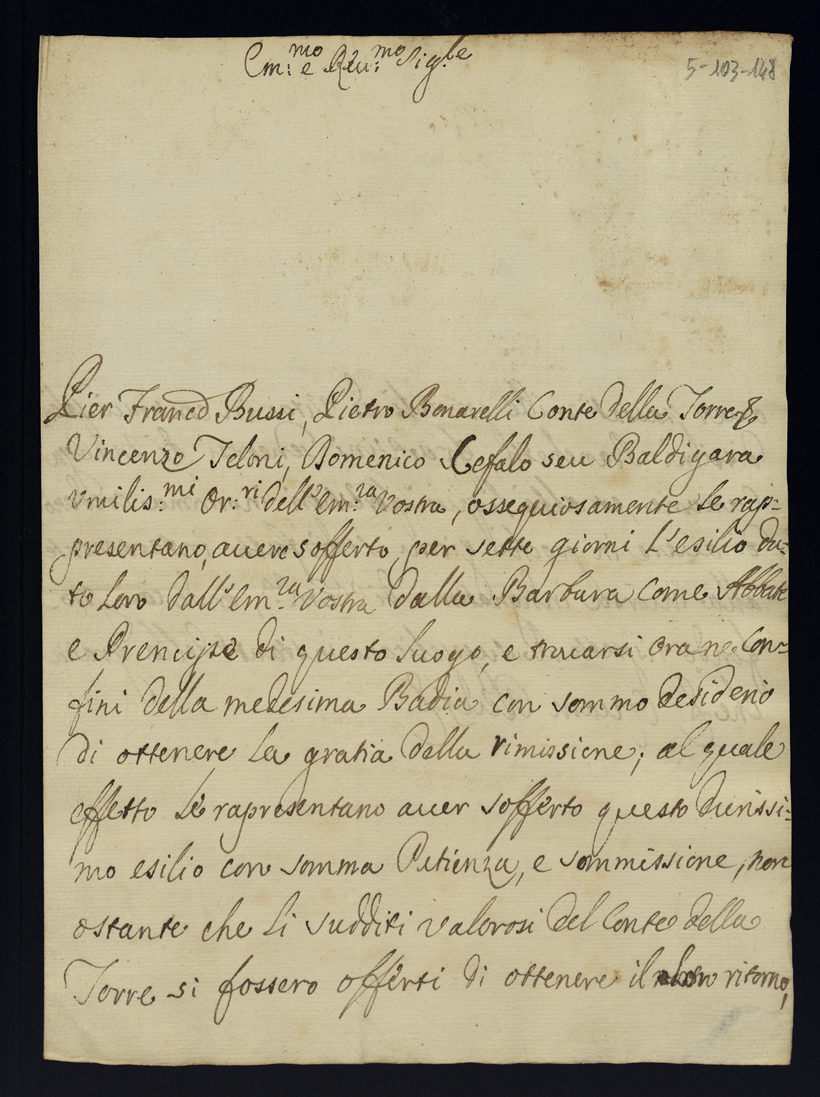 Em:mo e Rev:mo Sig.re
5-103-148
Pier Franco Bussi, Pietro Bonarelli Conte della Torre,
Vincenzo Teloni, Domenico Cefalo seu Baldigara
Umilis:mi Or:ri dell'Em:za Vostra, ossequiosamente le rap=
presentano, avere sofferto per sette giorni l'esilio da=
to loro dall'Em:za Vostra dalla Barbara come Abbate
e Prencipe di questo luogo, e truvarsi ora ne Con=
fini della medesima Badia con sommo desiderio
di ottenere la gratia della rimissione; al quale
effetto le rapresentano aver sofferto questo durissi=
mo esilio con somma Patienza, e sommissione, non
ostante che li sudditi valorosi del Conte della
Torre si fossero offerti di ottenere il ritorno,